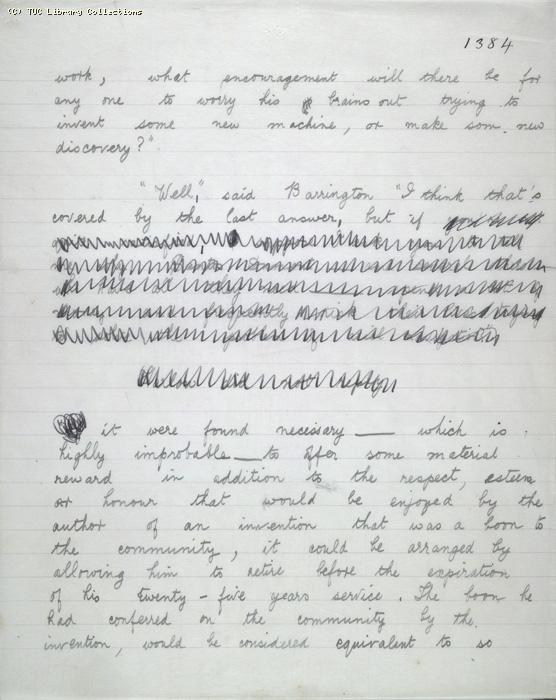 (c) TUC Library Collections
1384
work, what encouragement will there be for
any one to worry his brains out trying to
invent some new machine, or make som. new
discovery?"
"Well," said Barrington "I think that's
covered by the last answer, but if
it were found necessary — which is
highly improbable — to offer some material
reward in addition to the respect, esteem
or honour that would be enjoyed by the
author of an invention that was a boon to
the community, it could be arranged by
allowing him to retire before the expiration
of his twenty-five years service. The boon he
had conferred on the community by the
invention, would be considered equivalent to so